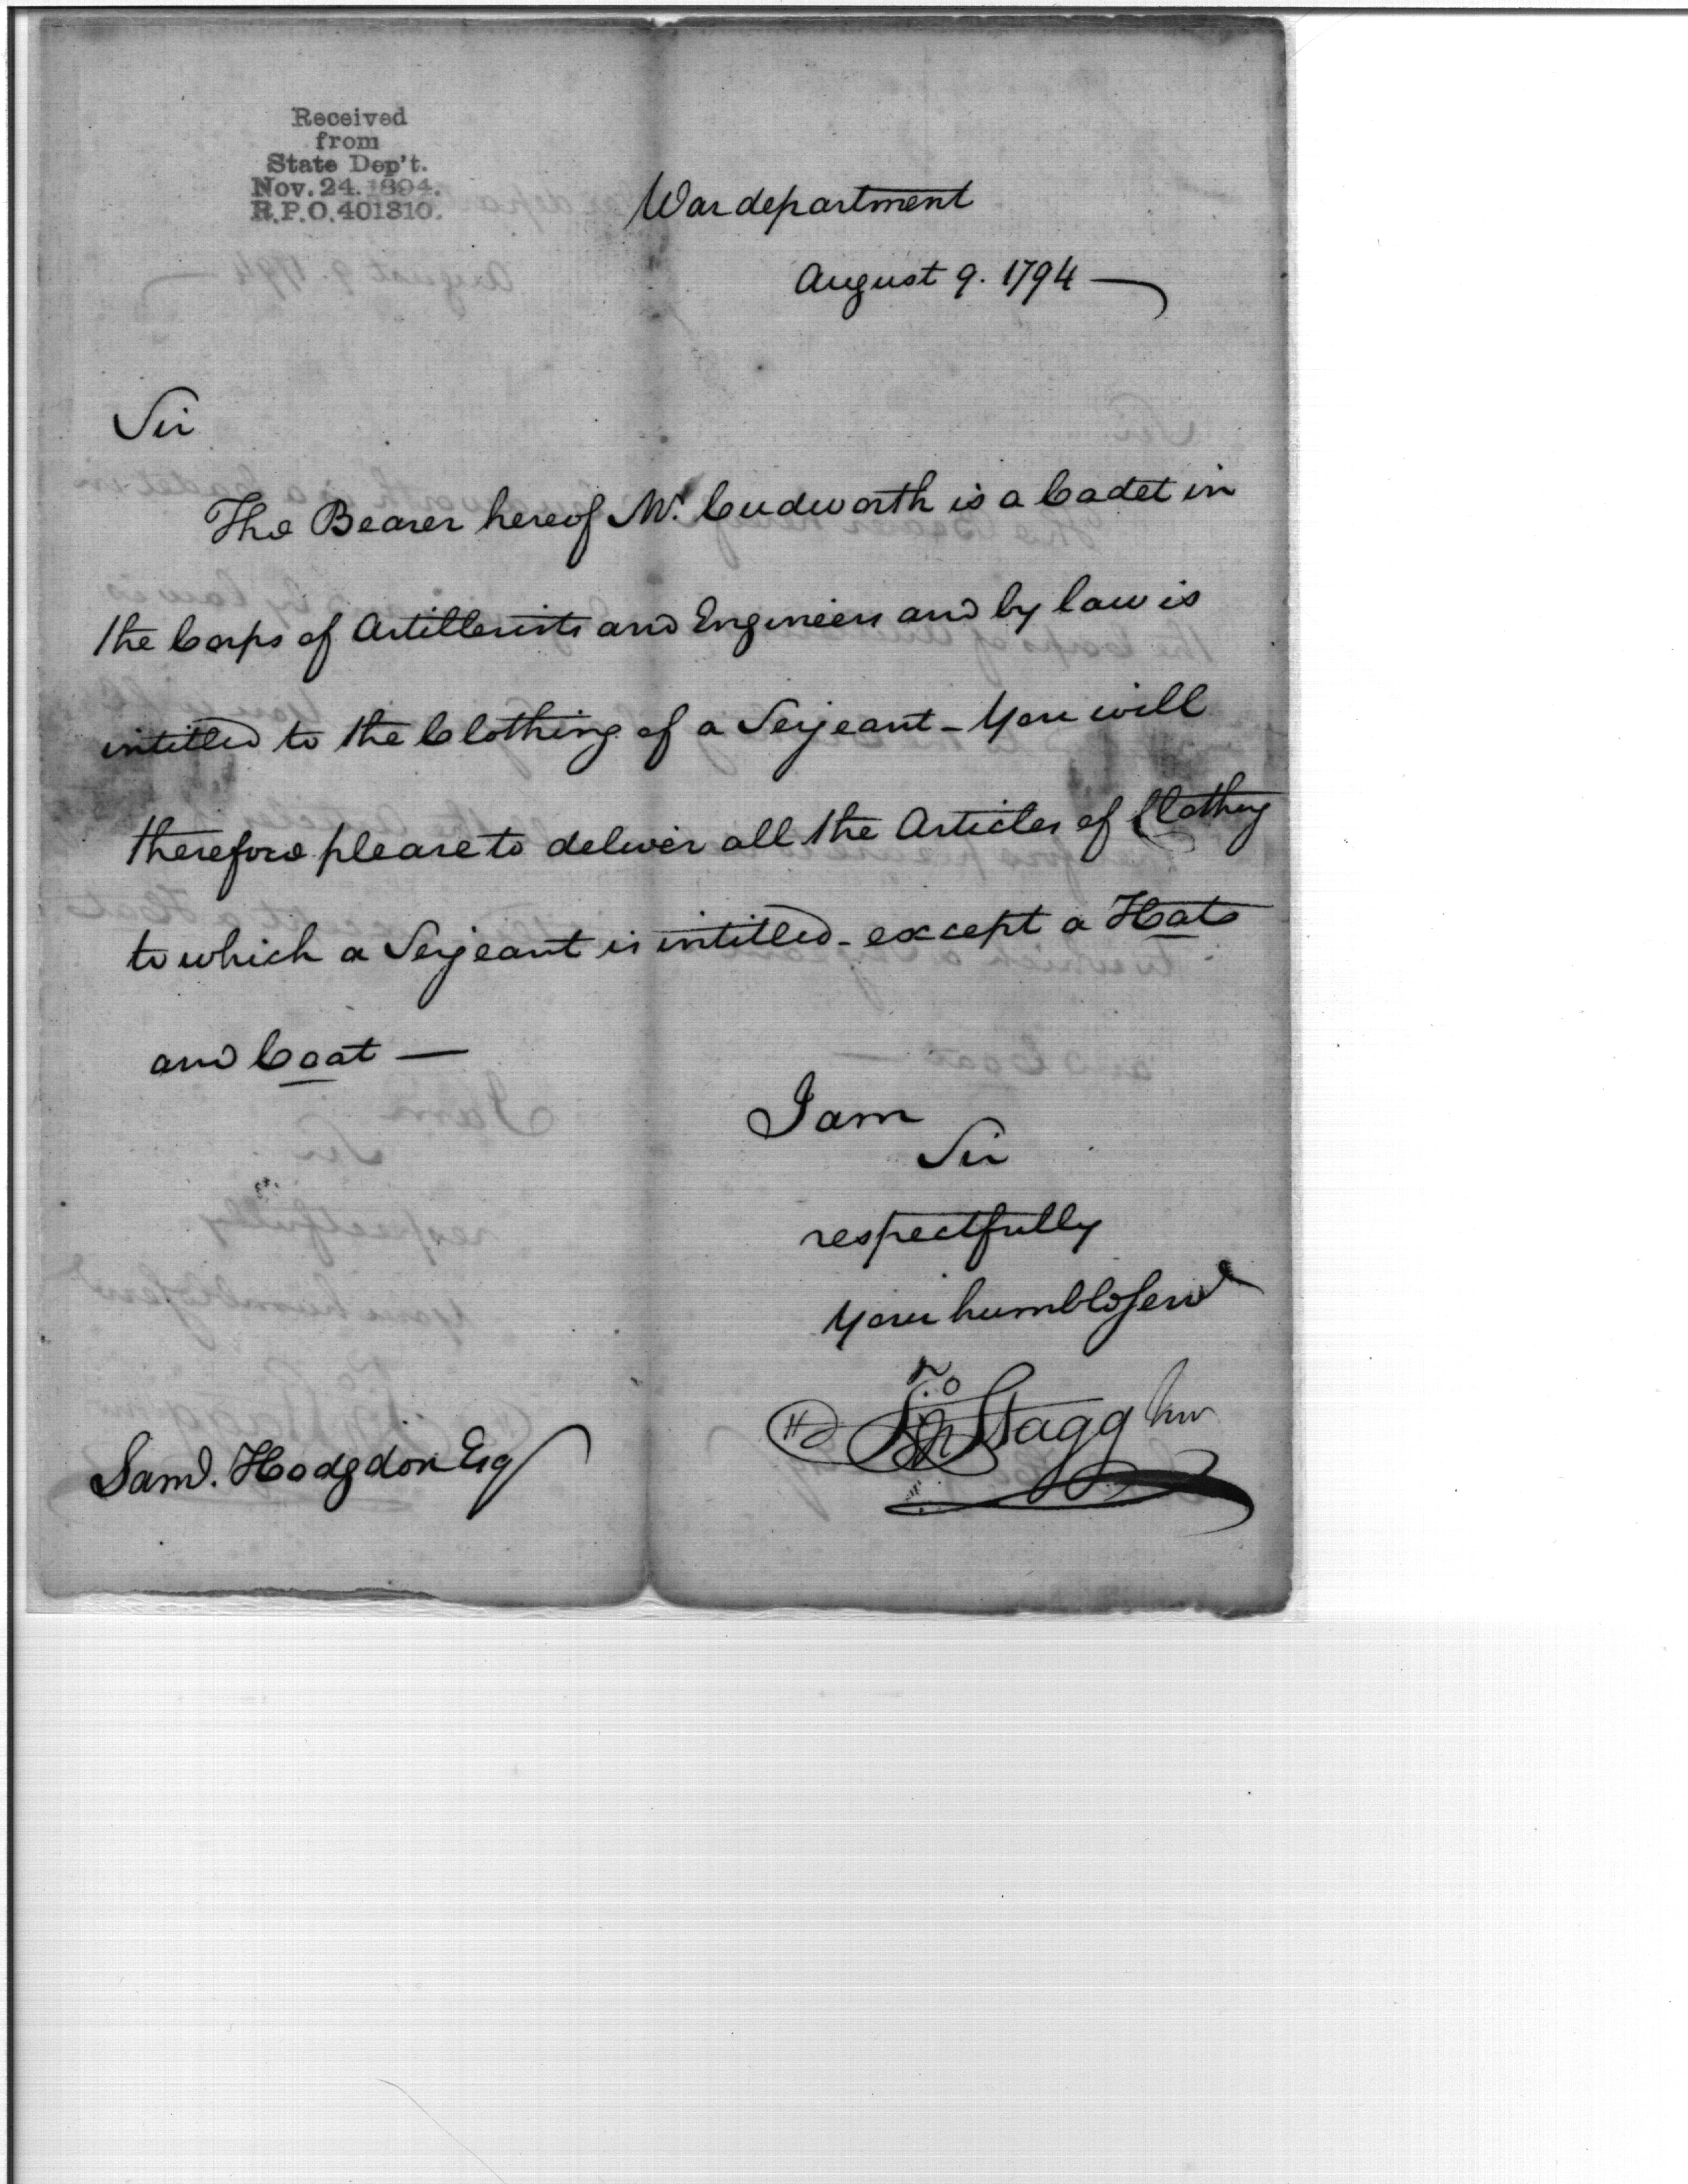 Received
from
State Dep't.
Nov. 24. 1894.
R.P.O. 401310.
War department
August 9. 1794 —
Sir
The Bearer hereof Mr. Cudworth is a Cadet in
the Corps of Artillerists and Engineers and by law is
intitled to the Clothing of a Serjeant - You will
therefore please to deliver all the Articles of Clothing
to which a Serjeant is intitled - except a Hat
and Coat —
I am
Sir
respectfully
Your humble Servt
Jno Stagg Junr
Saml. Hodgdon Esq